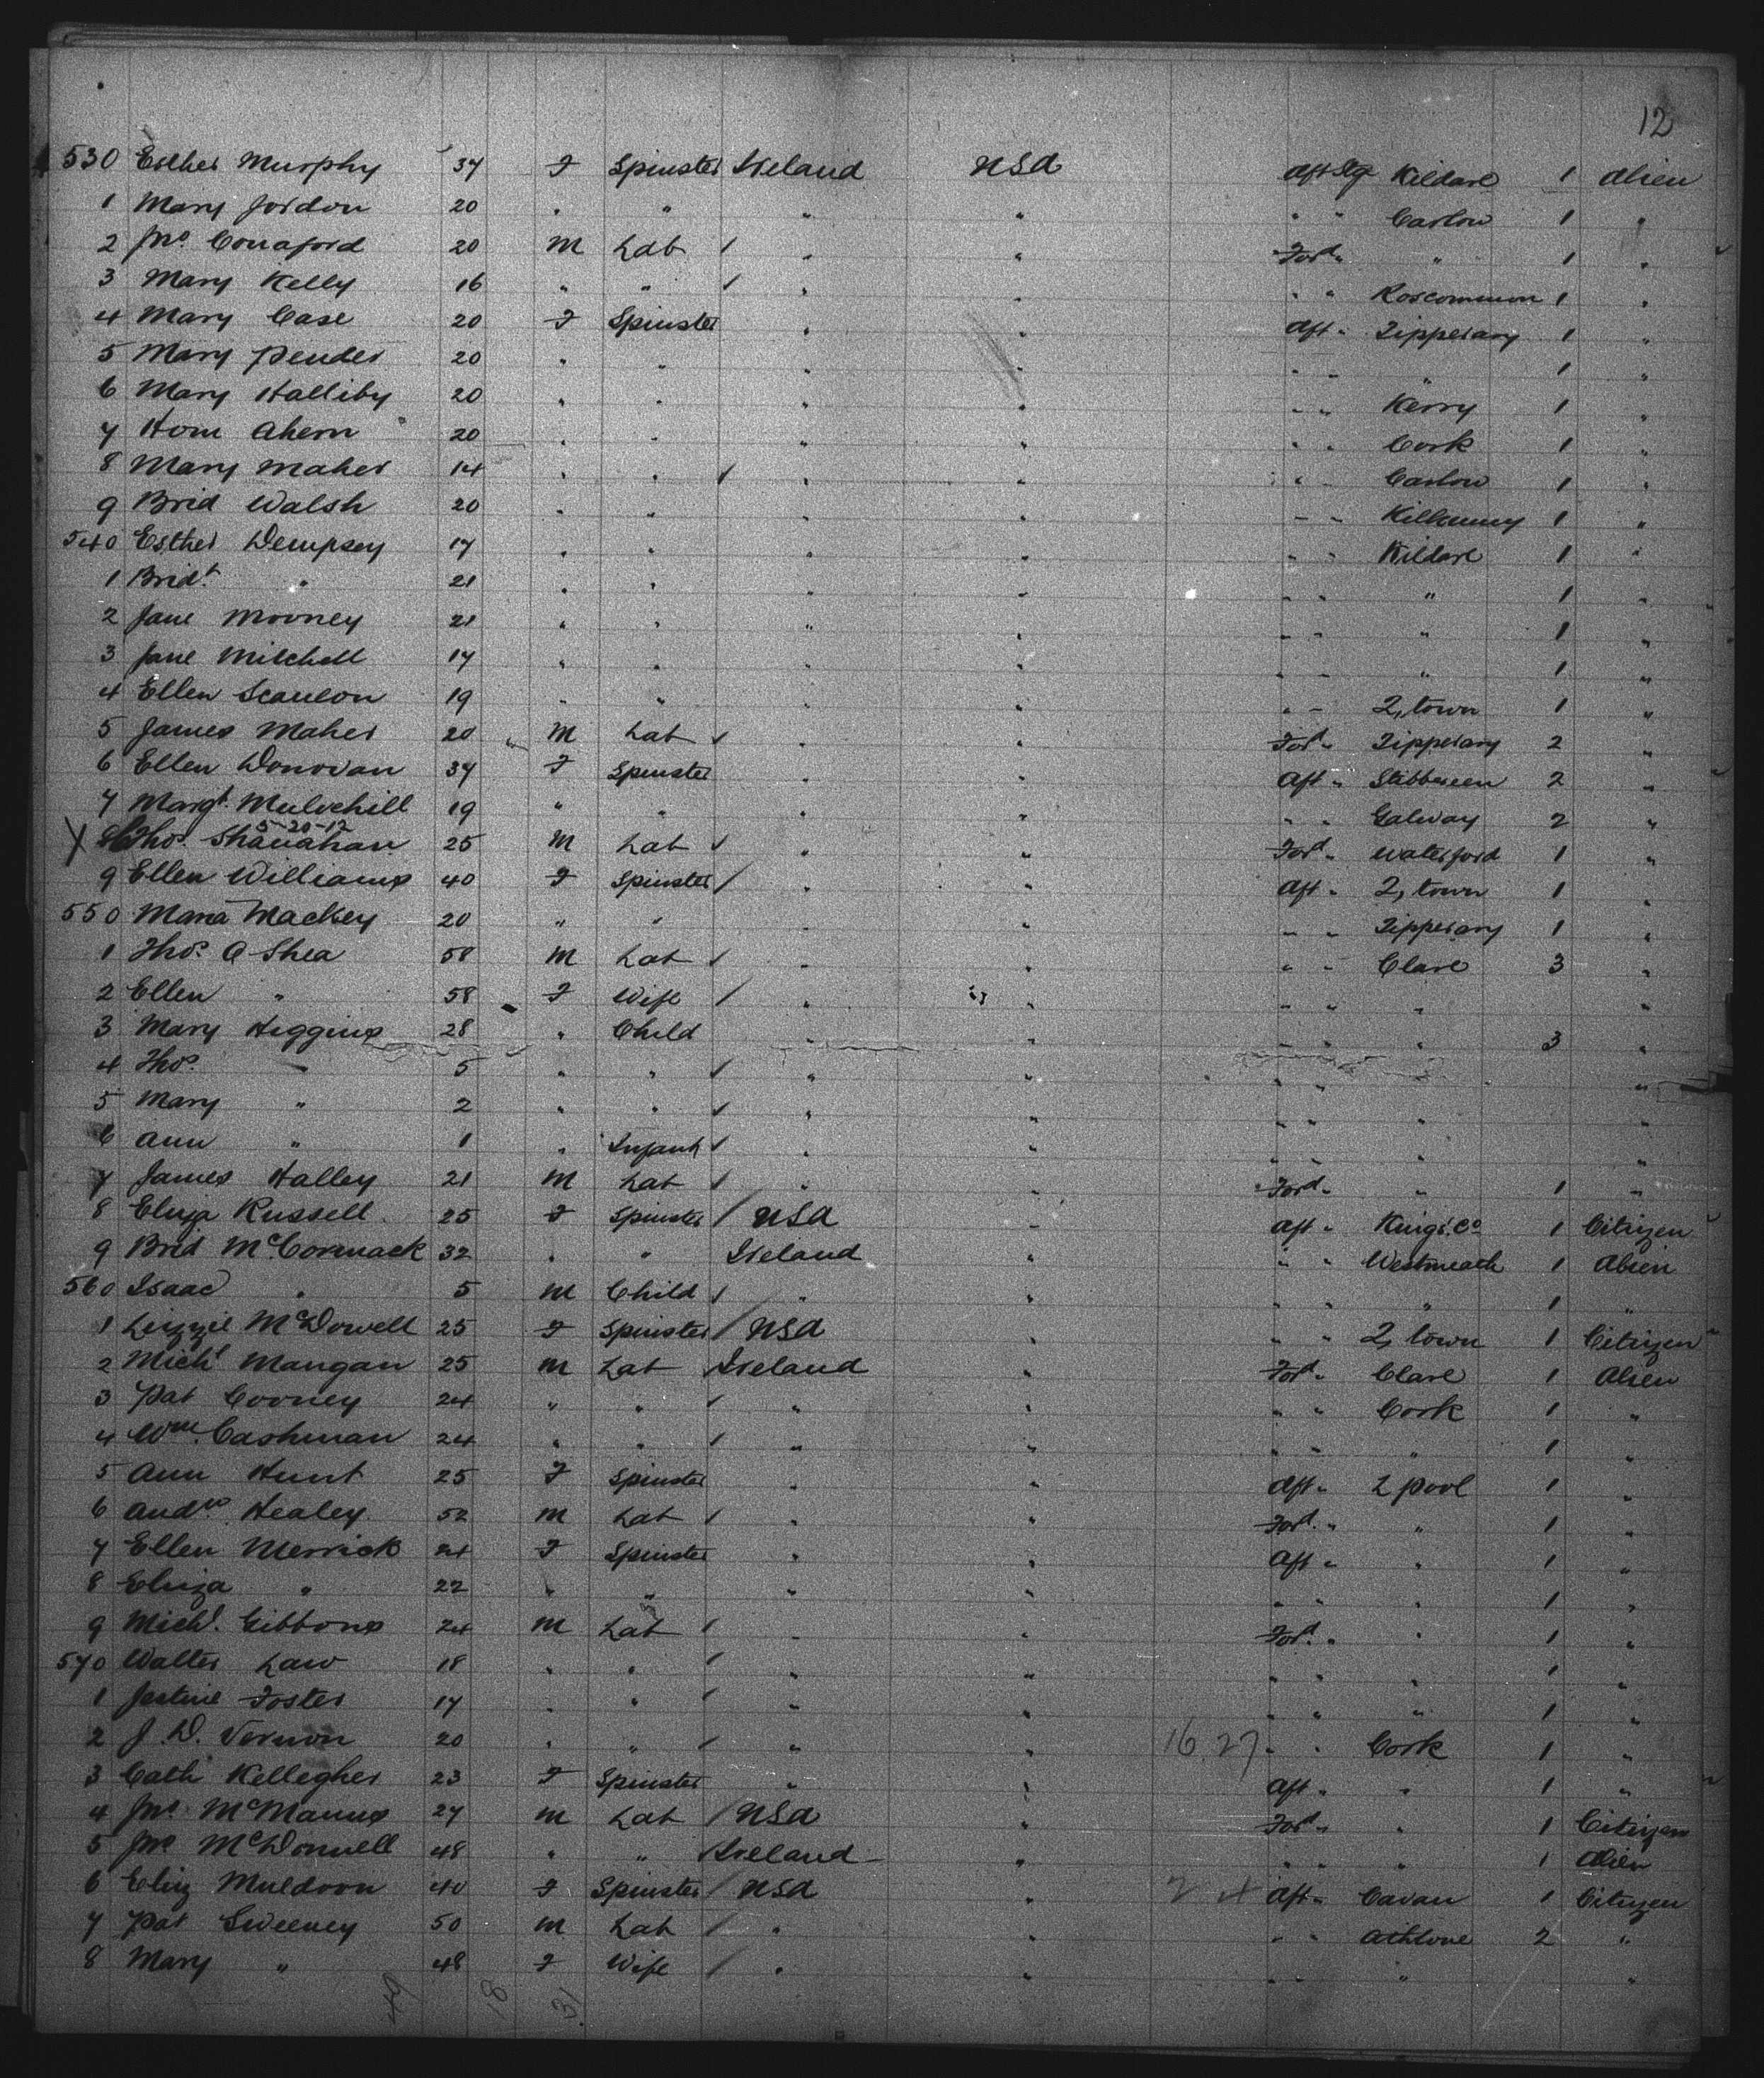 12
530 Esther Murphy 37 F Spinster Ireland USA Aft Stg Kildare 1 Alien
1 Mary Jordon 20 " " " " " " Carlow 1 "
2 Jno. Conaford 20 M Lab / " " Ford " " 1 "
3 Mary Kelly 16 " " / " " " " Roscommon 1 "
4 Mary Case 20 F Spinster " " Aft " Tipperary 1 "
5 Mary Pender 20 " " " " " " " 1 "
6 Mary Halliby 20 " " " " " " Kerry 1 "
7 Hom Ahern 20 " " " " " " Cork 1 "
8 Mary Maher 14 " " / " " " " Carlow 1 "
9 Brid Walsh 20 " " " " " " Kilkenny 1 "
540 Esther Dempsey 17 " " " " " " Kildare 1 "
1 Bridt. " 21 " " " " " " " 1 "
2 Jane Mooney 21 " " " " " " " 1 "
3 Jane Mitchell 17 " " " " " " " 1 "
4 Ellen Scanlon 19 " " " " " " Q, town 1 "
5 James Maher 20 M Lab / " " Ford " Tipperary 2 "
6 Ellen Donovan 37 F Spinster " " Aft " Skibbereen 2 "
7 Margt. Mulvehill 19 " " " " " " Galway 2 "
5-20-12
X 8 Thos. Shanahan 25 M Lab / " " Ford " Waterford 1 "
9 Ellen Williams 40 F Spinster / " " Aft " Q, town 1 "
550 Maria Mackey 20 " " " " " " Tipperary 1 "
1 Thos. O Shea 58 M Lab / " " " " Clare 3 "
2 Ellen " 58 F Wife / " " " " " "
3 Mary Higgins 28 " Child " " " " " 3 "
4 Thos. " 5 " " / " " " " "
5 Mary " 2 " " / " " " " " "
6 Ann " 1 " Infant / " " " " " "
7 James Halley 21 M Lab / " " Ford " " 1 "
8 Eliza Russell 25 F Spinster / USA " Aft " Kings Co 1 Citizen
9 Brid McCormack 32 " " Ireland " " " Westmeath 1 Alien
560 Isaac " 5 M Child / " " " " " 1 "
1 Lizzie McDowell 25 F Spinster / USA " " " Q, town 1 Citizen
2 Michl Mangan 25 M Lab / Ireland " Ford " Clare 1 Alien
3 Pat Cooney 24 " " / " " " " Cork 1 "
4 Wm. Cashman 24 " " / " " " " " 1 "
5 Ann Hunt 25 F Spinster " " Aft " L pool 1 "
6 Andw. Healey 52 M Lab / " " Ford " " 1 "
7 Ellen Merrick 24 F Spinster " " Aft " " 1 "
8 Eliza " 22 " " " " " " " 1 "
9 Michl. Gibbons 24 M Lab / " " Ford. " " 1 "
570 Walter Law 18 " " / " " " " " 1 "
1 Jestine Foster 17 " " / " " " " " 1 "
2 J. D. Vernon 20 " " / " " 16 27 " " Cork 1 "
3 Cath Kellegher 23 F Spinster " " Aft " " 1 "
4 Jno. McManus 27 M Lab / USA " Ford " " 1 Citizen
5 Jno McDonnell 48 " " / Ireland " " " " 1 Alien
6 Eliz Muldoon 40 F Spinster / USA " 2 4 Aft " Cavan 1 Citizen
7 Pat Sweeney 50 M Lab / " " " " Athlone 2 "
8 Mary " 48 F Wife / " " " " " "
49 18 31